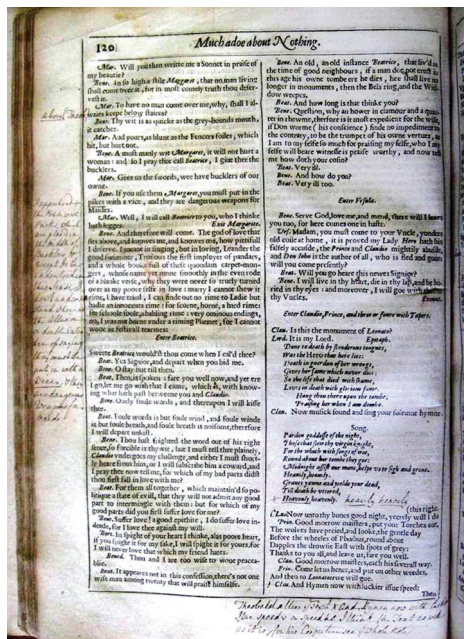 120
Much adoe about Nothing.
Mar. Will you then write me a Sonnet in praise of
my beautie?
Bene. In so high a stile Margaret, that no man living
shall come over it, for in most comely truth thou deser-
vest it.
Mar. To have no man come over me, why, shall I al-
waies keepe below staires?
Bene. Thy wit is as quicke as the grey-hounds mouth,
it catches.
Mar. And yours, as blunt as the Fencers foiles, which
hit, but hurt not.
Bene. A most manly wit Margaret, it will not hurt a
woman: and so I pray thee call Beatrice, I give thee the
bucklers.
Mar. Give us the swords, wee have bucklers of our
owne.
Bene. If you use them Margaret, you must put in the
pikes with a vice, and they are dangerous weapons for
Maides.
Mar. Well, I will call Beatrice to you, who I thinke
hath legges. Exit Margarite.
Bene. And therefore will come. The god of love that
sits above, and knowes me, and knowes me, how pittifull
I deserve. I meane in singing, but in loving, Leander the
good swimmer, Troilous the first imployer of pandars,
and a whole booke full of these quondam carpet-mon-
gers, whose names yet runne smoothly in the even rode
of a blanke verse, why they were never so truely turned
over as my poore selfe in love: marry I cannot shew it
rime, I have tried, I can finde out no rime to Ladie but
badie an innocents rime: for scorne, horne, a hard rime:
for schoole foole, a babling rime: very ominous endings,
no, I was not borne under a riming Planner, for I cannot
wooe in festivall tearmes:
Enter Beatrice.
Sweete Beatrice would'st thou come when I cal'd thee?
Beat. Yea Signior, and depart when you bid me.
Bene. O stay but till then.
Beat. Then, is spoken: fare you well now, and yet ere
I go, let me go with that I came, which is, with know-
ing what hath past betweene you and Claudio.
Bene. Onely foule words, and thereupon I will kisse
thee.
Beat. Foule words is but foule wind, and foule winde
is but foule breath, and foule breath is noisome, therefore
I will depart unkist.
Bene. Thou hast frighted the word out of his right
sence, so forcible is thy wit, but I must tell thee plainely,
Claudio undergoes my challenge, and either I must short-
ly heare from him, or I will subscribe him a coward, and
I pray thee now tell me, for which of my bad parts didst
thou first fall in love with me?
Beat. For them all together, which maintain'd so po-
litique a state of evill, that they will not admit any good
part to intermingle with them: but for which of my
good parts did you first suffer love for me?
Bene. Suffer love! a good epithite, I do suffer love in-
deede, for I love thee against my will.
Beat. In spight of your heart I thinke, alas poore heart,
if you spight it for my sake, I will spight it for yours, for
I will never love that which my friend hates.
Bened. Thou and I are too wise to wooe peacea-
blie.
Beat. It appeares not in this confession, there's not one
wise man among twenty that will praise himselfe.
Bene. An old, an old instance Beatrice, that liv'd in
the time of good neighbours, if a man doe not erect in
this age his owne tombe ere he dies, hee shall live no
longer in monuments, then the Bels ring, and the Wid-
dow weepes.
Beat. And how long is that thinke you?
Bene. Question, why an hower in clamour and a quar-
ter in rhewme, therfore is it most expedient for the wise,
if Don worme (his conscience) finde no impediment to
the contrary, to be the trumpet of his owne vertues, as
I am to my selfe so much for praising my selfe, who I my
selfe will beare witnesse is praise worthy, and now tell
me how doth your cosin?
Beat. Very ill.
Bene. And how do you?
Beat. Very ill too.
Enter Vrsula.
Bene. Serve God, love me, and mend, there will I leave
you too, for here comes one in haste.
Urs. Madam, you must come to your Vncle, yonders
old coile at home, it is proved my Lady Hero hath bin
falsely accusde, the Prince and Claudio mightily abusde,
and Don John is the author of all, who is fled and gone:
will you come presently?
Beat. Will you go heare this newes Signior?
Bene. I will live in thy heart, die in thy lap, and be bu-
ried in thy eyes: and moreover, I will goe with thee to
thy Vncles. Exeunt.
Enter Claudio, Prince, and three or foure with Tapers.
Clau. Is this the monument of Leonato?
Lord. It is my Lord. Epitaph.
Done to death by slanderous tongues,
Was the Hero that here lies:
Death in guerdon of her wrongs,
Gives her fame which never dies:
So the life that died with shame,
Lives in death with glorious fame.
Hang thou there upon the tombe,
Praising her when I am dombe.
Clau. Now musick sound and sing your solemne hymne.
Song.
Pardon goddesse of the night,
Those that slew thy virgin knight,
For the which with songs of woe,
Round about her tombe they goe:
Midnight assist our mone, helpe us to sigh and grone.
Heavily, heavily.
Graves yawne and yeelde your dead,
Till death be uttered,
Heavenly, heavenly.
(this right.
Clau. Now unto thy bones good night, yeerely will I do
Prin. Good morrow masters, put your Torches out,
The wolves have preied, and looke, the gentle day
Before the wheeles of Phœbus, round about
Dapples the drowsie East with spots of grey:
Thanks to you all, and leave us, fare you well.
Clau. Good morrow masters, each his severall way.
Prin. Come let us hence, and put on other weedes,
And then to Leonatoes we will goe.
Clau. And Hymen now with luckier issue speeds,
Then